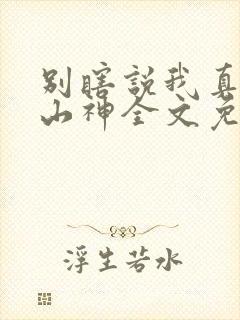 别瞎説我真
山神全文免
浮生若水